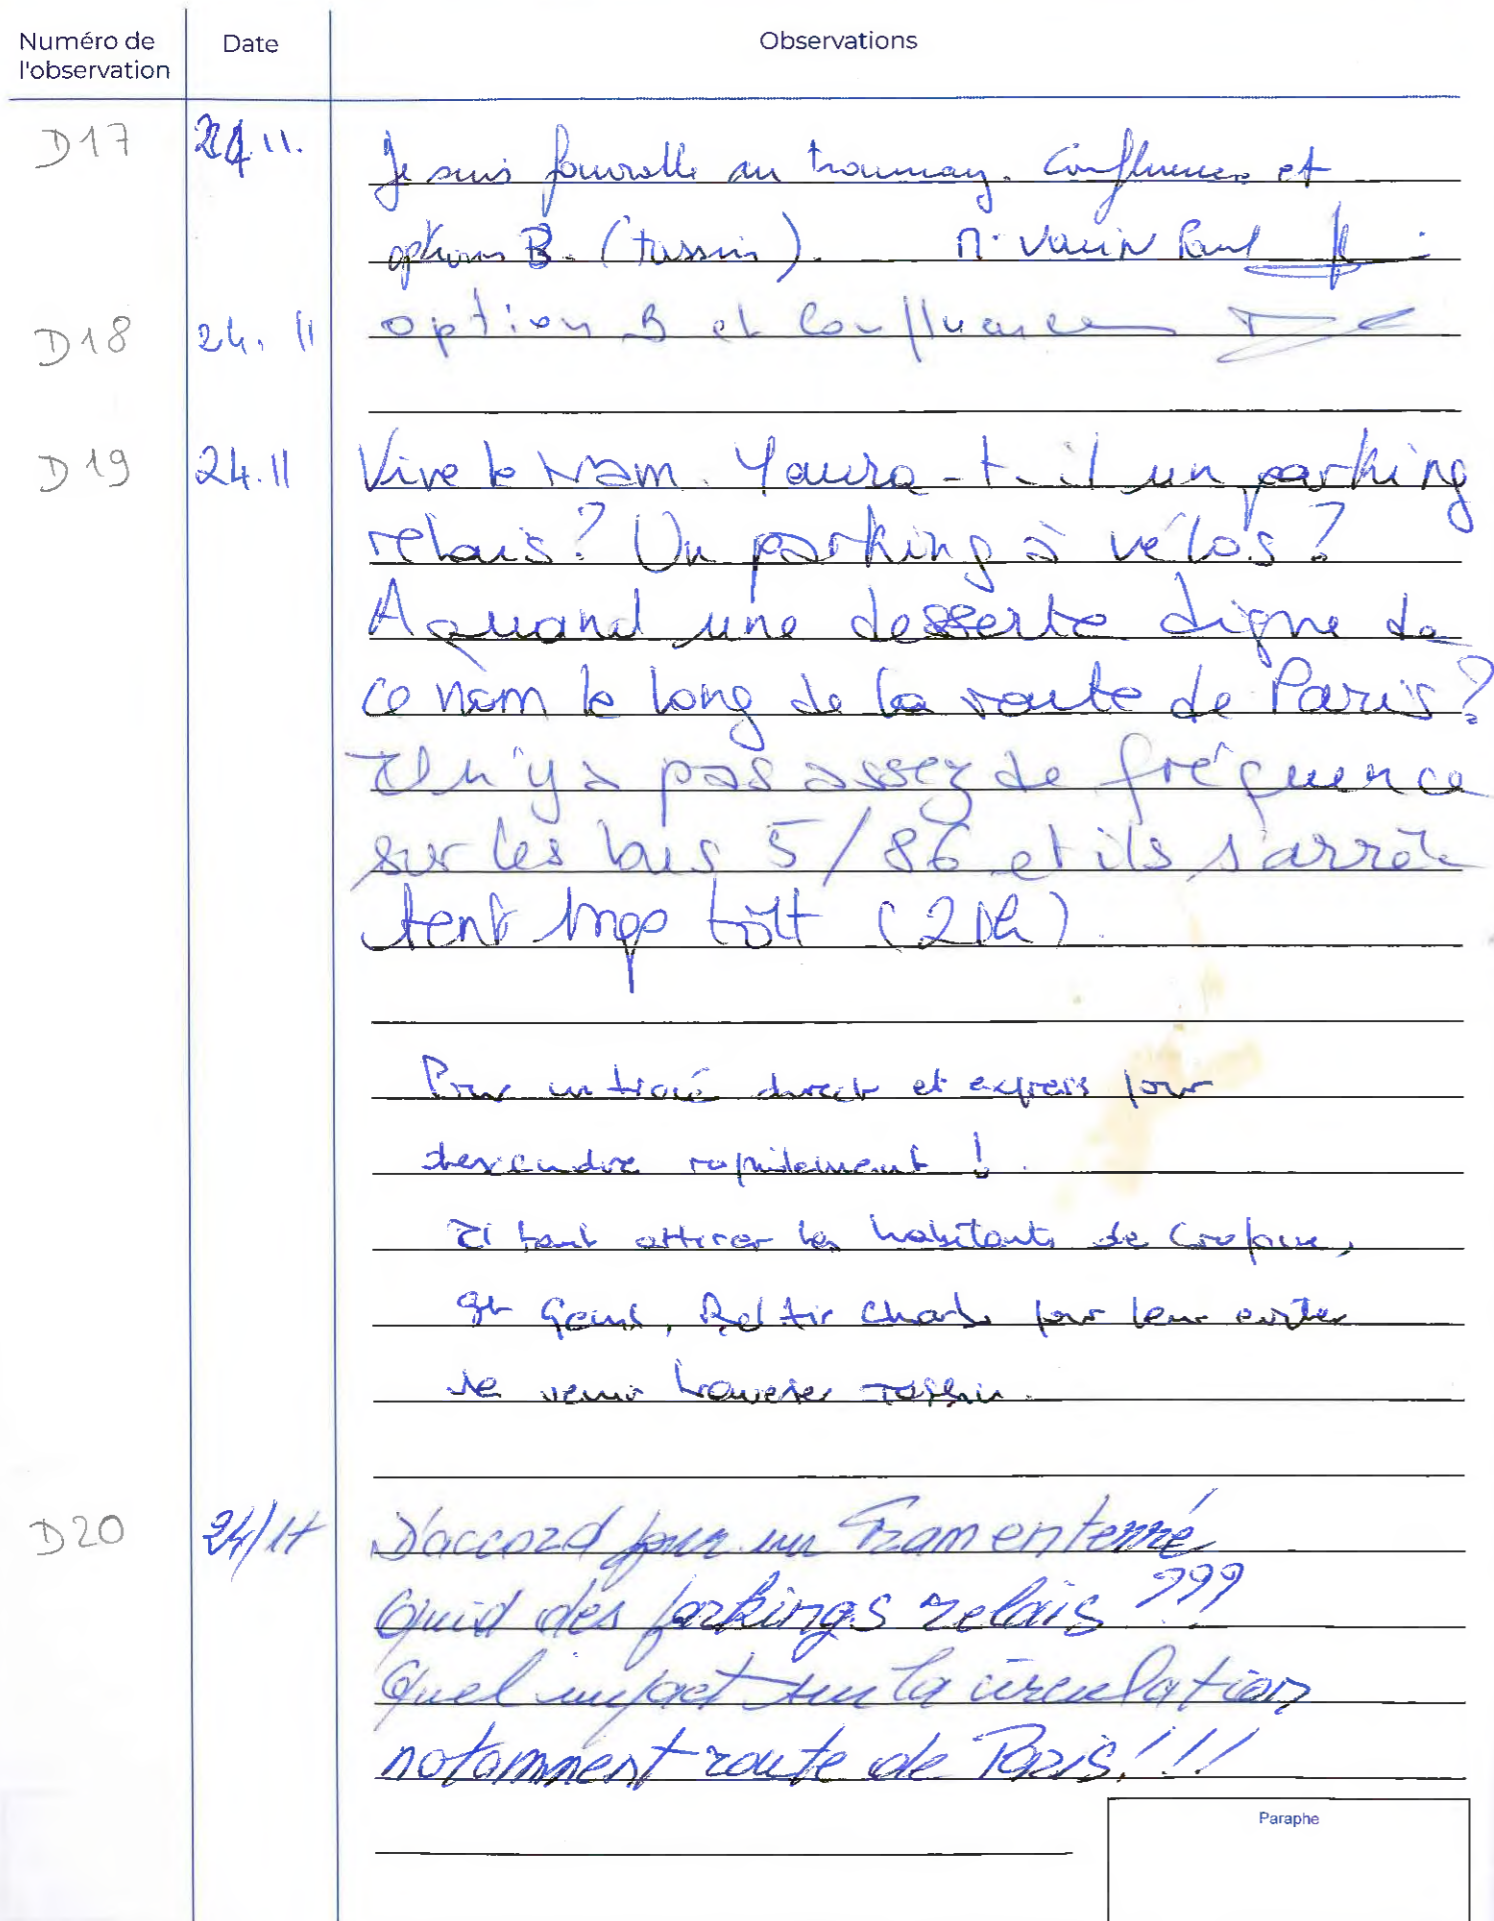 Numéro de
l'observation
Date
Observations
D17
24.11.
Je suis favorable au tramway. Confluence et
option B. (tassin). M. Paul
D18
24.11
option B et Confluence
D19
24.11
Vive le tram. Y aura-t-il un parking
relais? Un parking à vélos?
A quand une desserte digne de
ce nom le long de la route de Paris?
Il n'y a pas assez de fréquence
sur les bus 5/86 et ils s'arrête
tent trop tôt (21h)
Pour un tracé direct et express pour
descendre rapidement !
Il faut attirer les habitants de Craponne,
St Genis, pour leur eviter
de venir traverser Tassin.
D20
24/11
D'accord pour un Tram enterré
Quid des parkings relais ???
Quel impact sur la circulation
notamment route de Paris!!!
Paraphe